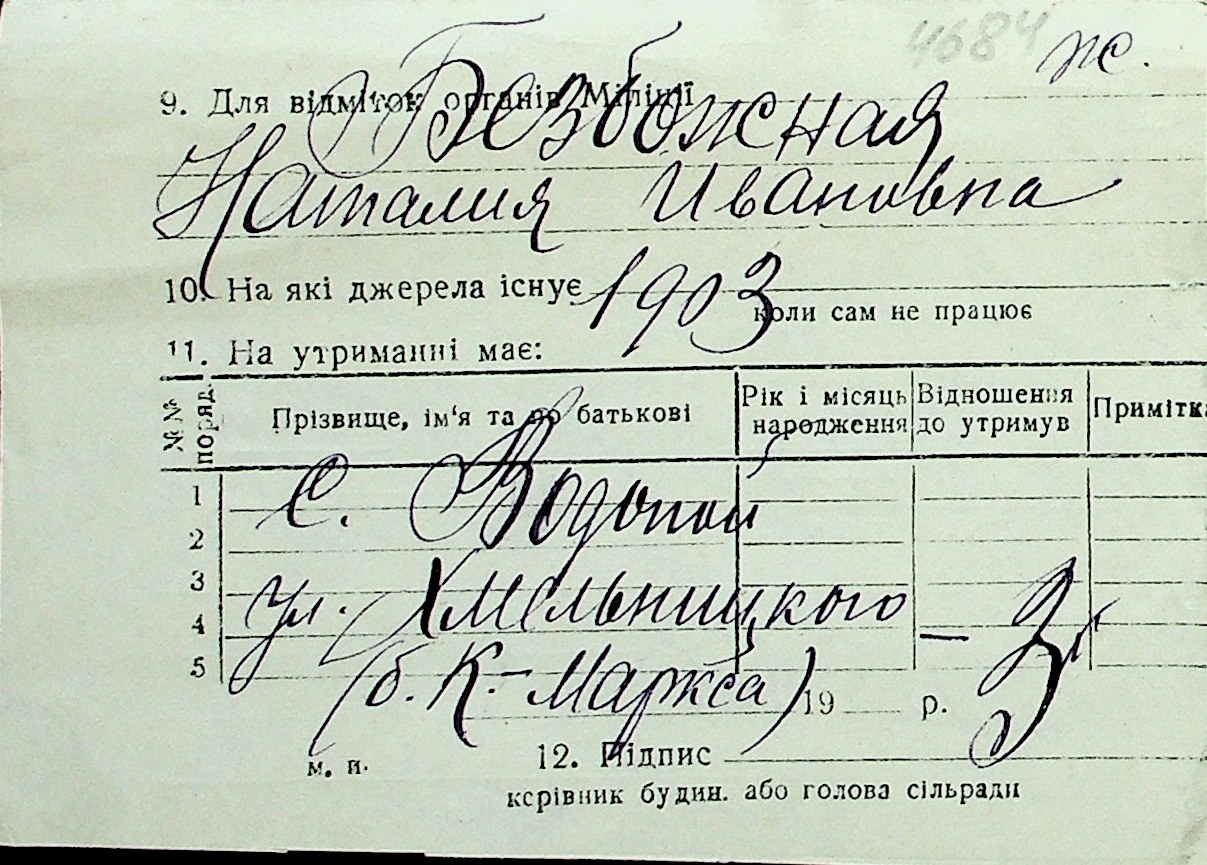 4684 ж.
9. Для відміток органів Міліції
Безбожная
Наталия Ивановна
10. На які джерела існує 1903
коли сам не працює
11. На утриманні має:
№№ поряд. Прізвище, ім'я та по батькові Рік і місяць народження Відношення до утримув Примітка
1 с. Водопой
2
3 ул. Хмельницкого
4
5 (б. К.-Маркса) 19 р.
м. п. 12. Підпис
керівник будин. або голова сільради